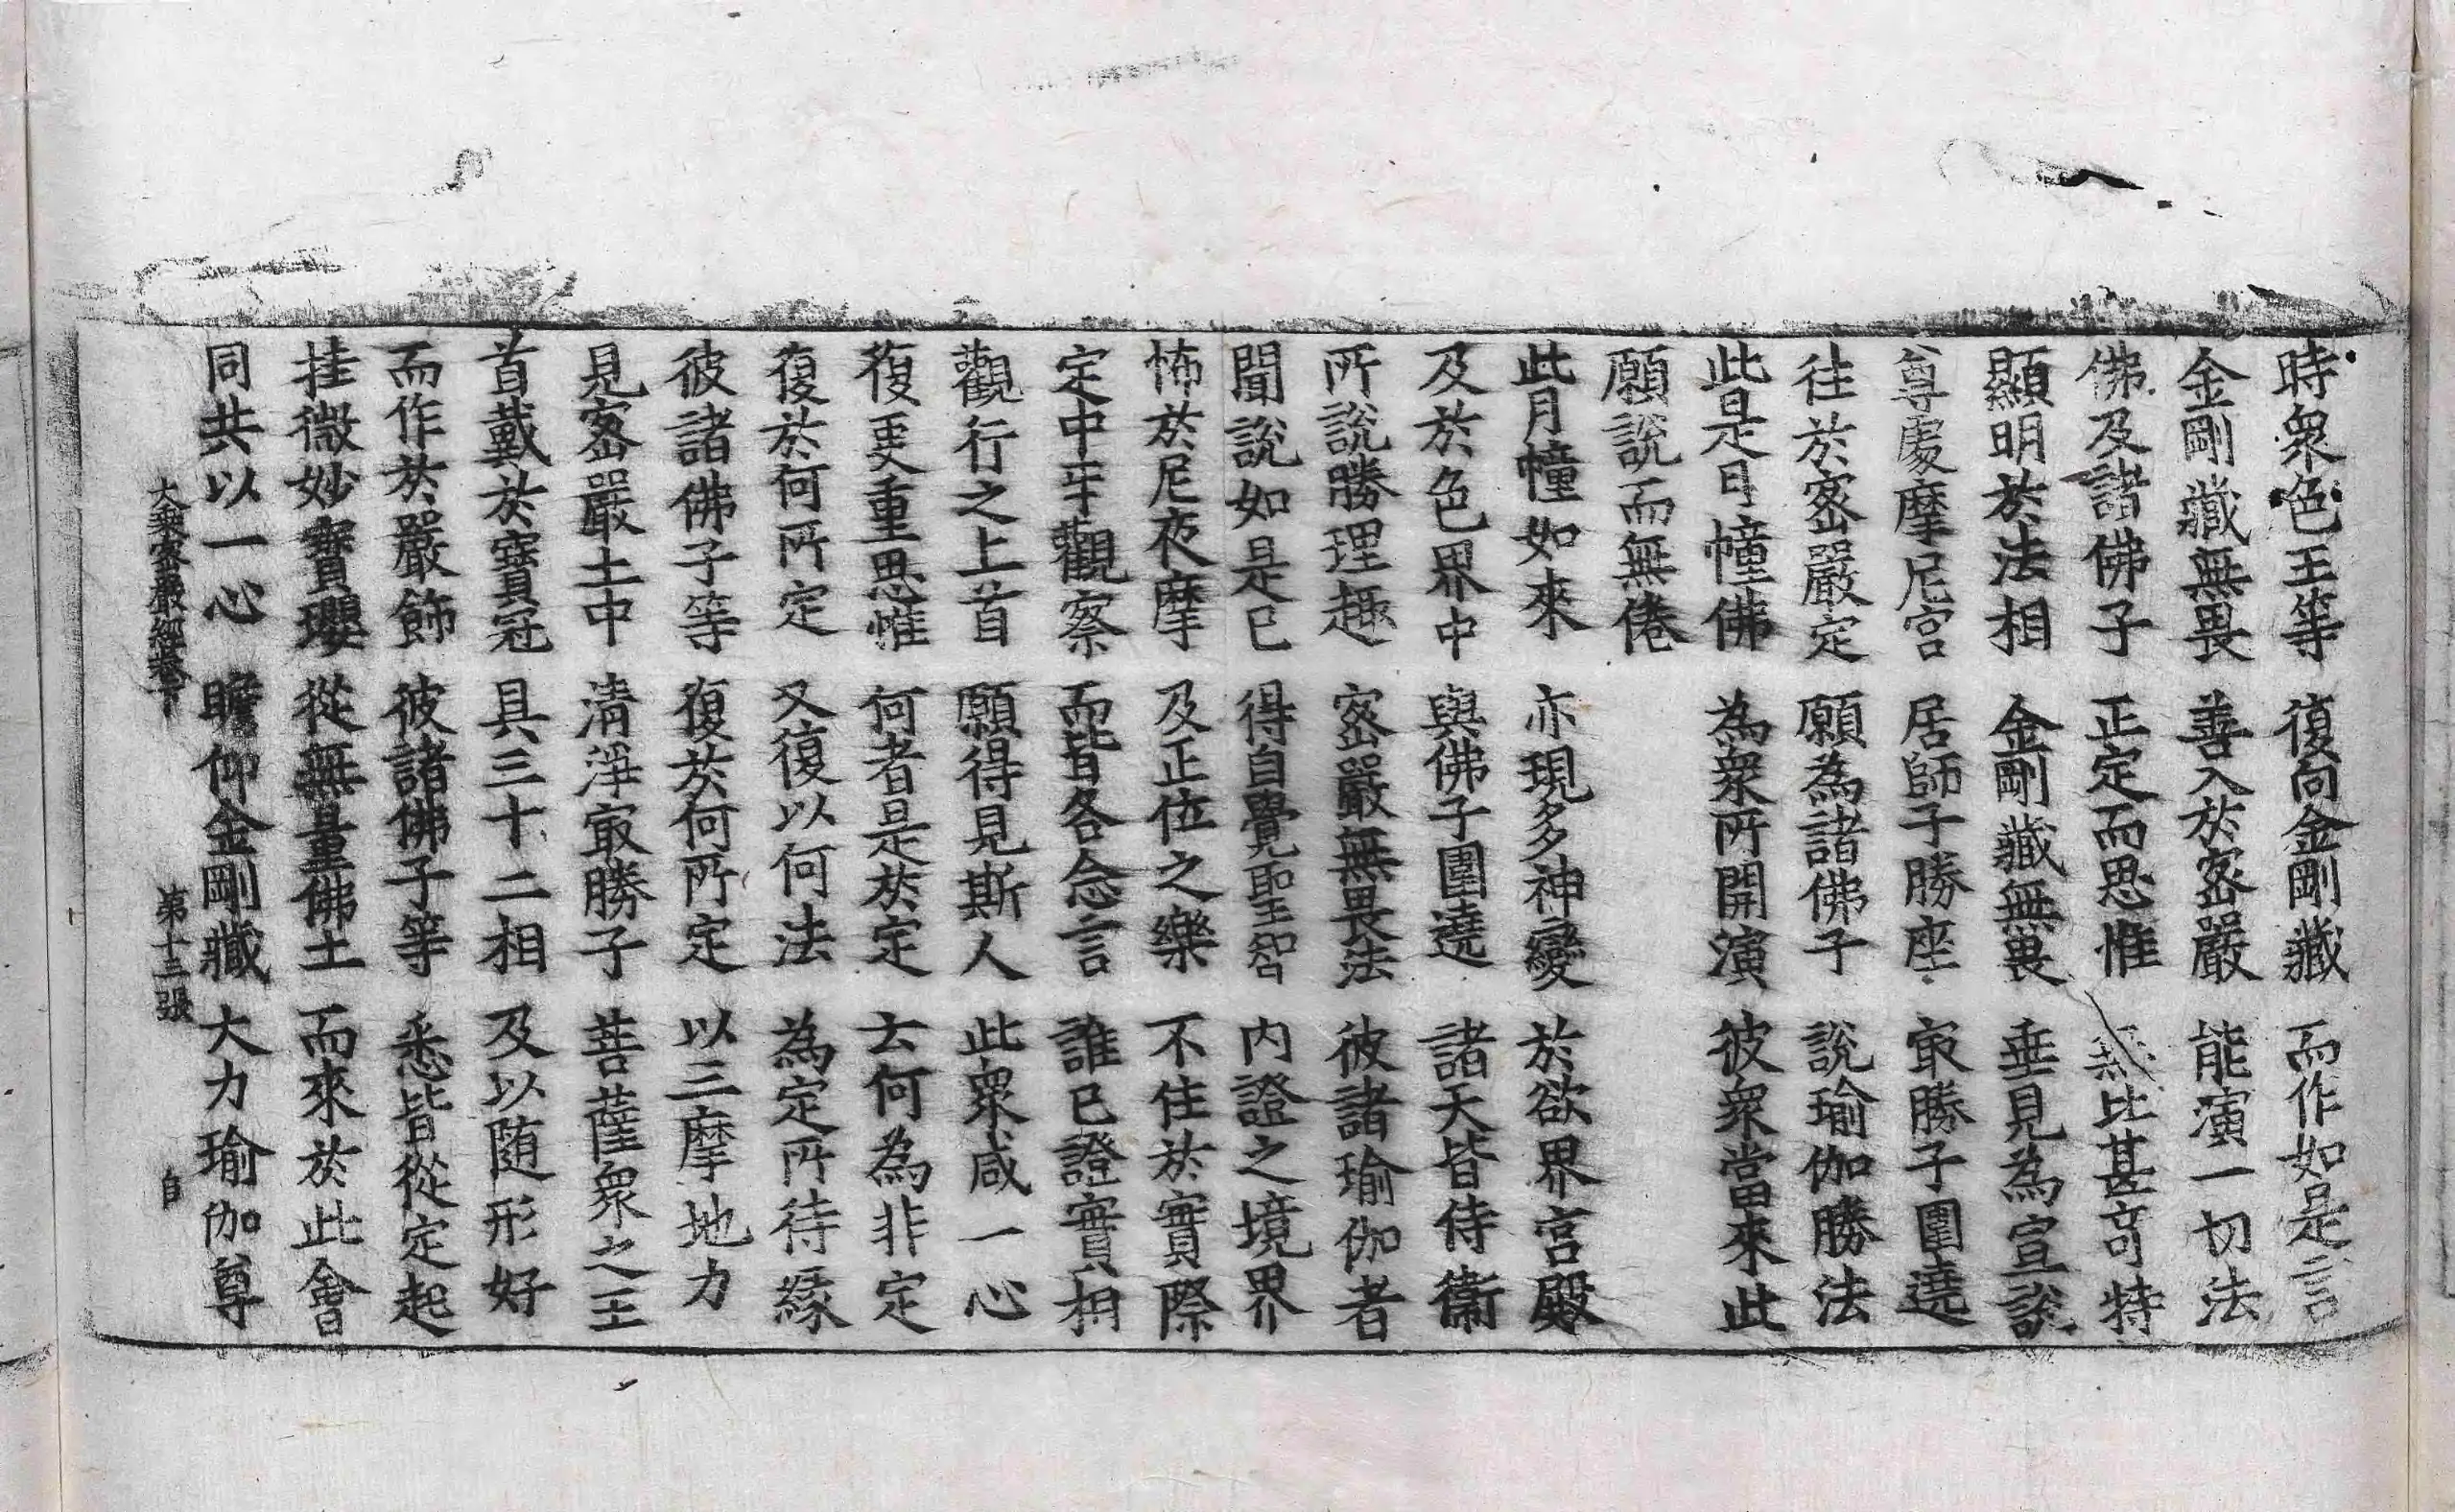 時衆色王等 復向金剛藏 而作如是言
金剛藏無畏 善入於密嚴 能演一切法
佛及諸佛子 正定而思惟 無比甚奇特
顯明於法相 金剛藏無畏 垂見為宣說
尊處摩尼宮 居師子勝座 㝡勝子圍遶
住於密嚴定 願為諸佛子 說瑜伽勝法
此是月幢佛 為衆所開演 彼衆當來此
願說而無倦
此月幢如來 亦現多神變 於欲界宮殿
及於色界中 與佛子圍遶 諸天皆侍衛
所說勝理趣 密嚴無畏法 彼諸瑜伽者
聞說如是已 得自覺聖智 內證之境界
怖於尼夜摩 及正位之樂 不住於實際
定中牙觀察 而皆各念言 誰已證實相
觀行之上首 願得見斯人 此衆咸一心
復更重思惟 何者是於定 云何為非定
復於何所定 又復以何法 為定所待緣
彼諸佛子等 復於何所定 以三摩地力
見密嚴土中 清淨㝡勝子 菩薩衆之王
首戴於寶冠 具三十二相 及以随形好
而作於嚴飾 彼諸佛子等 悉皆從定起
挂微妙寶瓔 從無量佛土 而來於此會
同共以一心 瞻仰金剛藏 大力瑜伽尊
大乘密嚴經卷下 第十三張 自